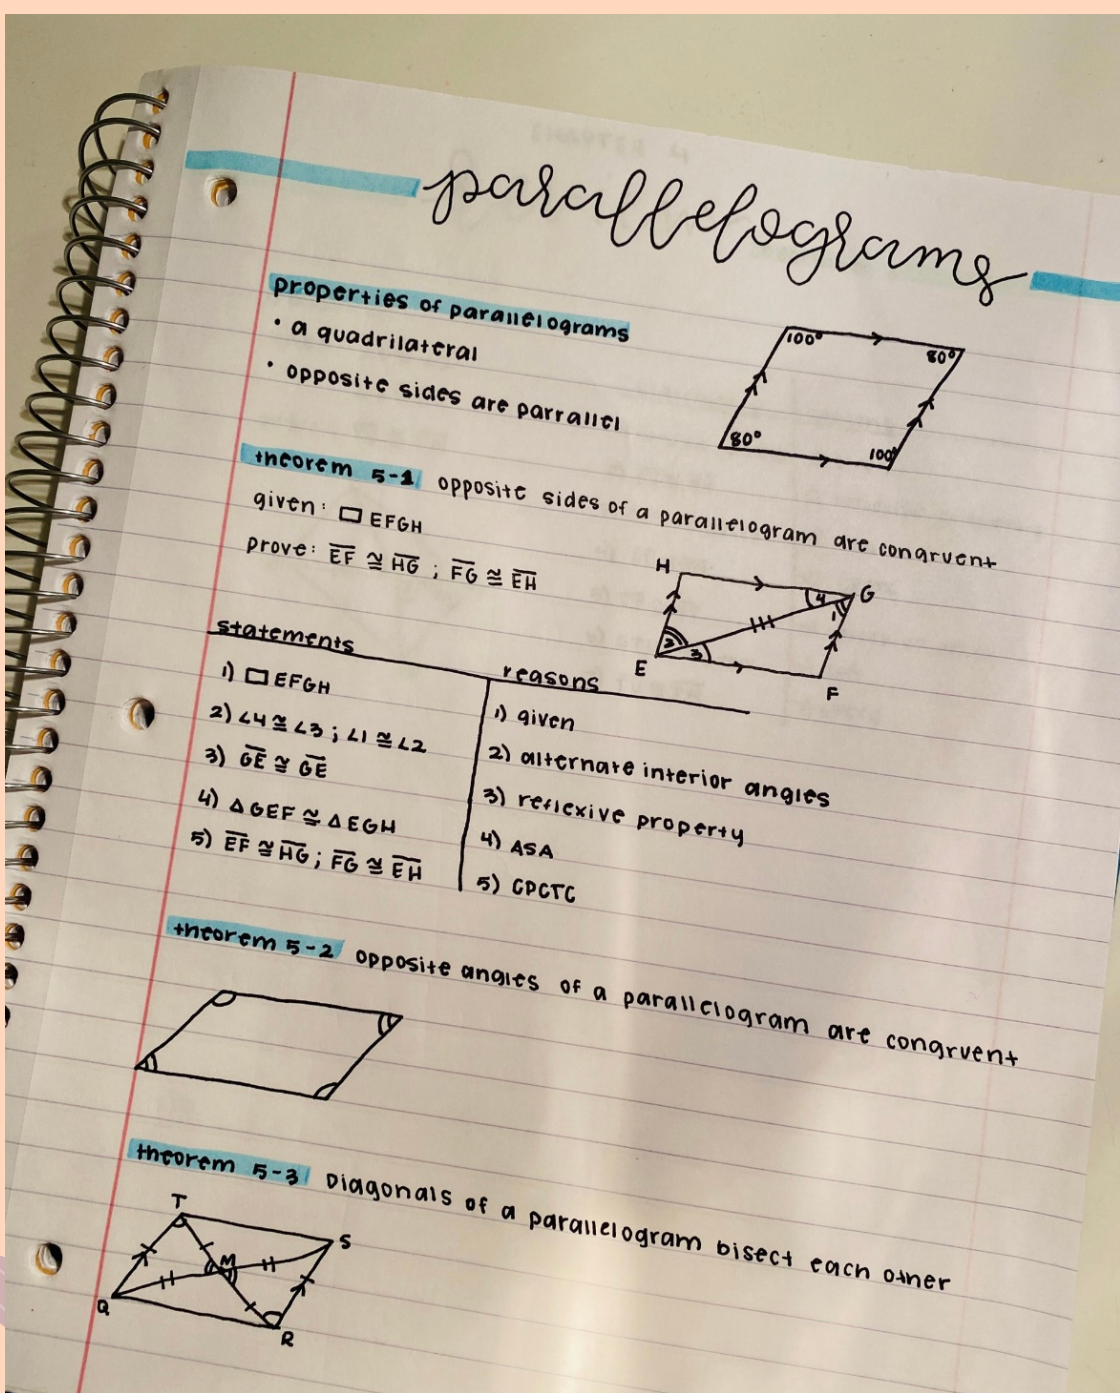 parallelograms
properties of parallelograms
• a quadrilateral
• opposite sides are parrallel
100° 80°
80° 100°
theorem 5-1 opposite sides of a parallelogram are congruent
given: ▱ EFGH
prove: E͞F ≅ H͞G ; F͞G ≅ E͞H
H G
4 1
2 3
E F
statements reasons
1) ▱ EFGH
2) ∠4 ≅ ∠3 ; ∠1 ≅ ∠2
3) G͞E ≅ G͞E
4) △GEF ≅ △EGH
5) E͞F ≅ H͞G ; F͞G ≅ E͞H
1) given
2) alternate interior angles
3) reflexive property
4) ASA
5) CPCTC
theorem 5-2 opposite angles of a parallelogram are congruent
theorem 5-3 Diagonals of a parallelogram bisect each other
T
S
M
Q
R